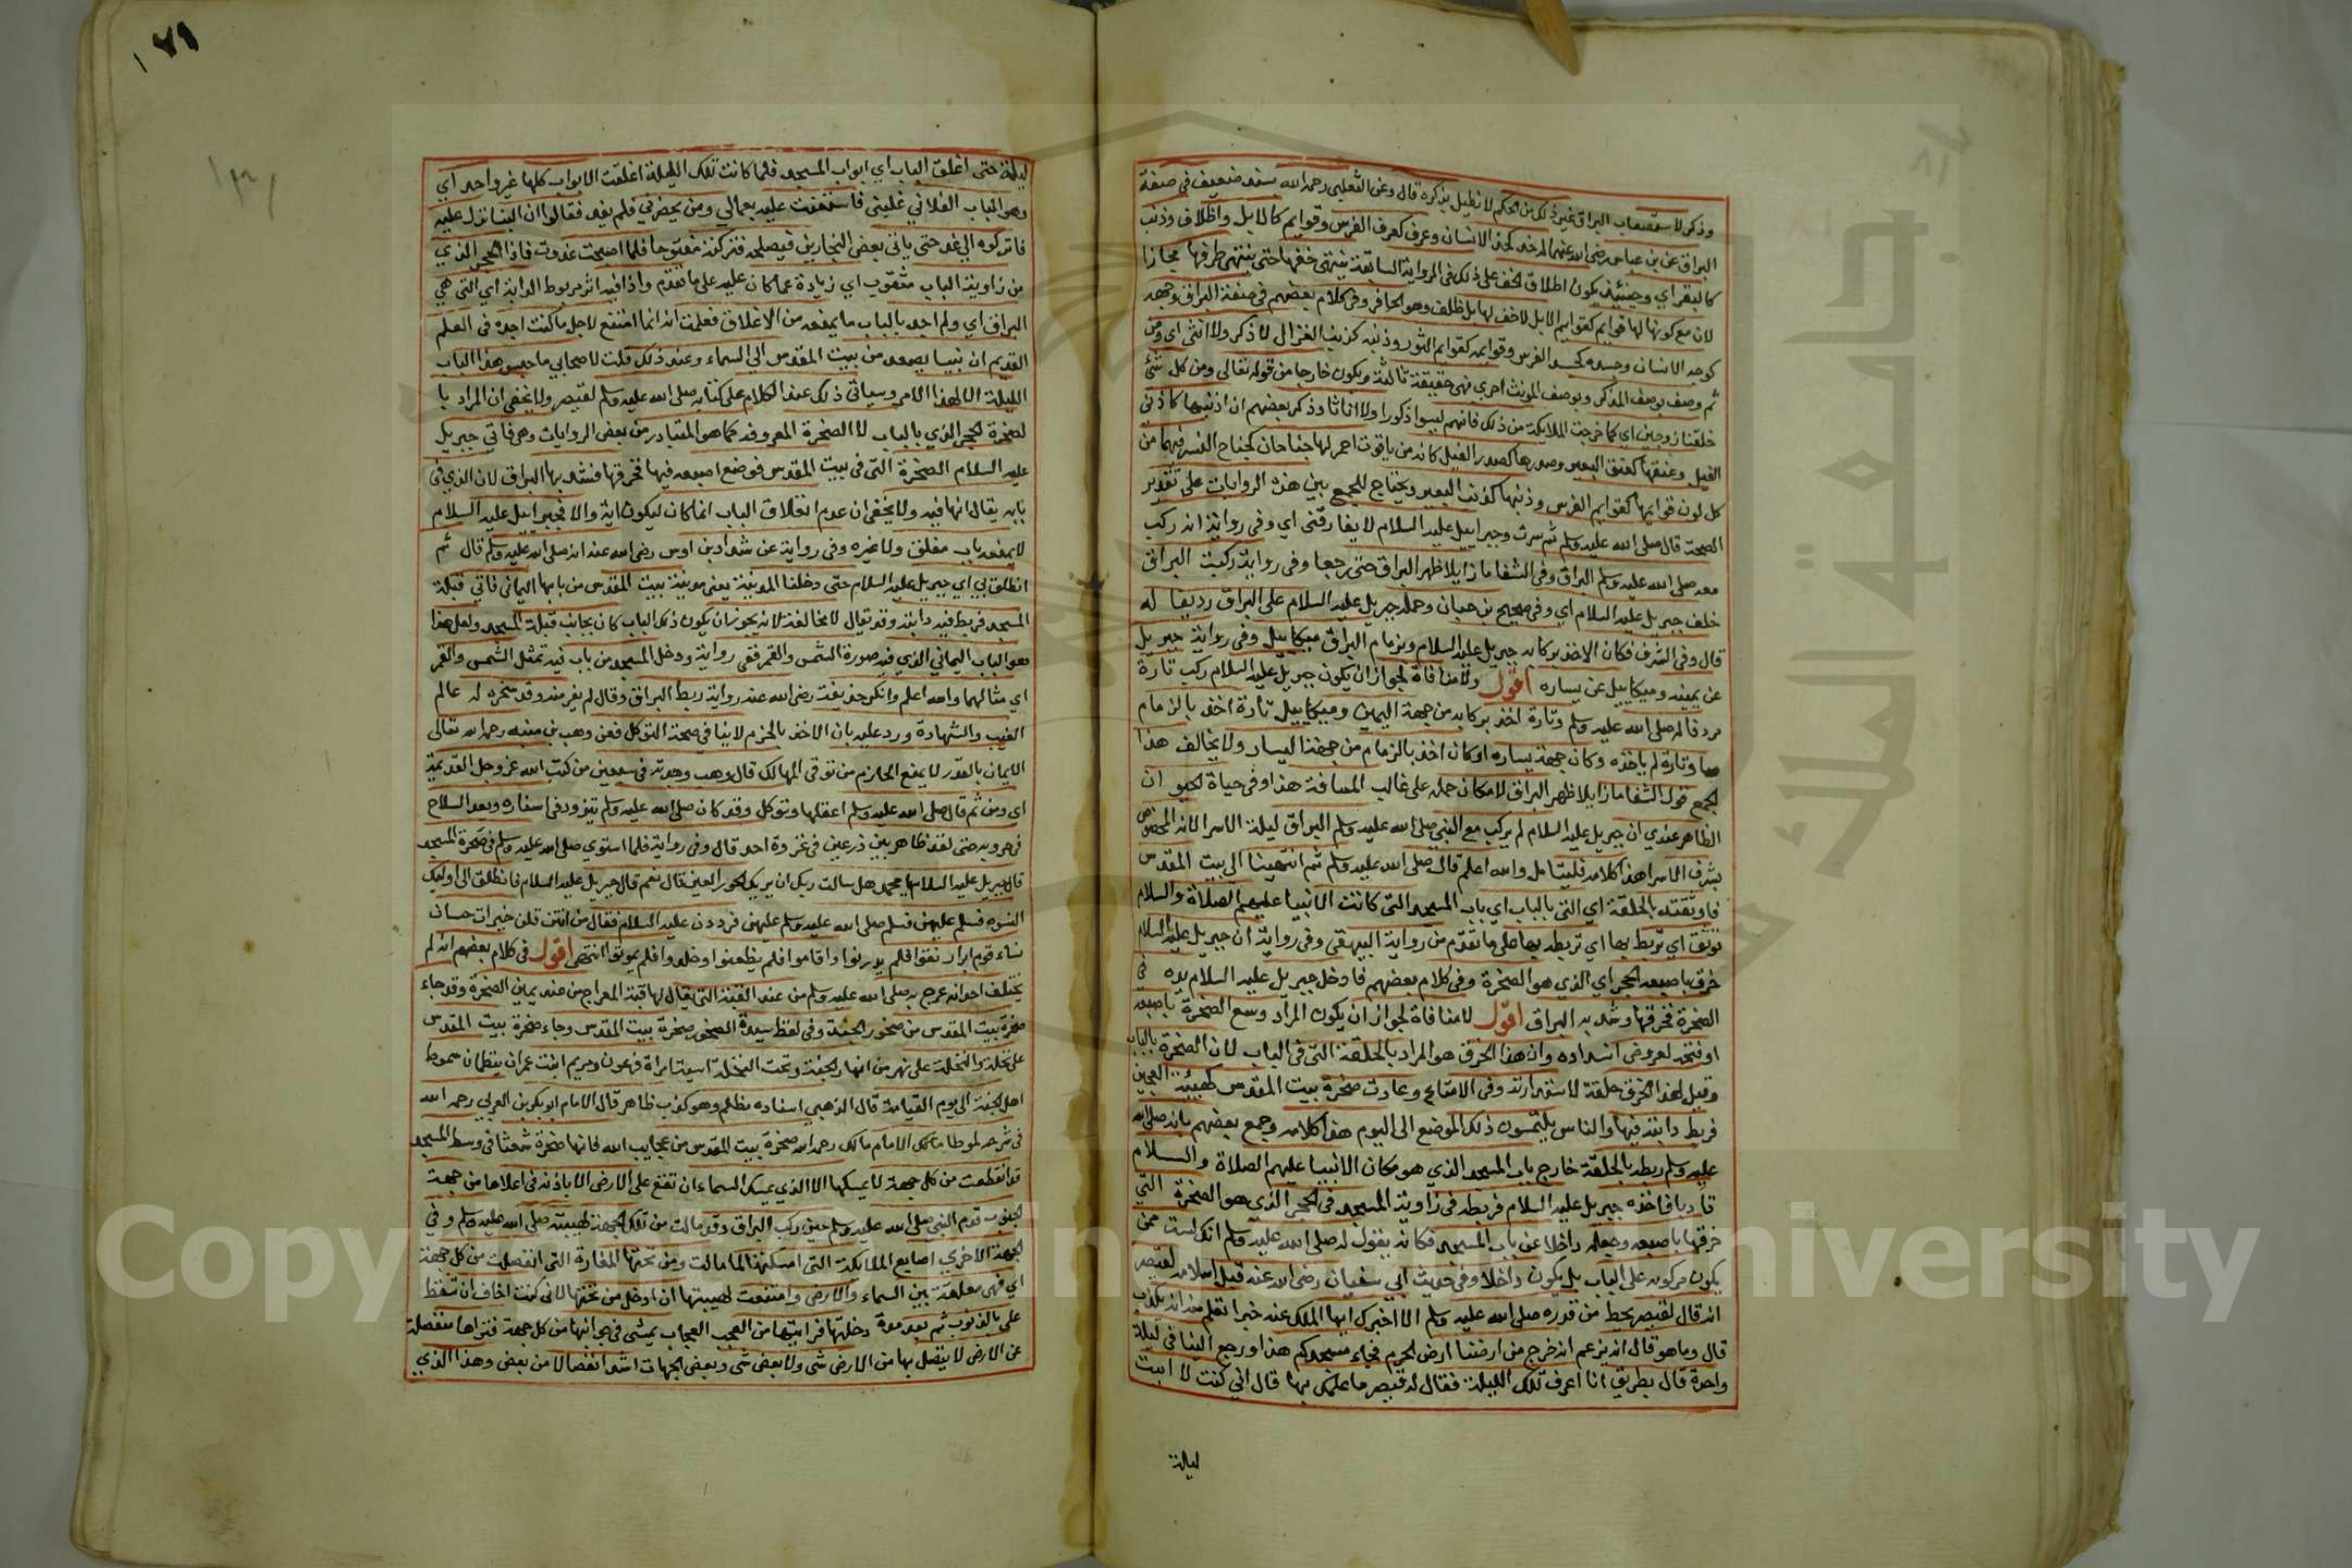 وذكر لاستصعاب البراق غير ذلك من الحكم لا نطيل بذكره قال وعن الثعلبي رحمه الله بسند ضعيف في صفة
البراق عن بن عباس رضي الله عنهما له خد كخد الانسان وعرف كعرف الفرس وقوايم كالابل واظلاف وذنب
كالبقر اي وحينئذ يكون اطلاق الخف على ذلك في الرواية السابقة ينتهي خفها حتى ينتهي طرفها مجازا
لان مع كونها لها قوايم كقوايم الابل لا خف لها بل ظلف وهو الحافر وفي كلام بعضهم في صفة البراق وجهه
كوجه الانسان وجسده كجسد الفرس وقوايمه كقوايم الثور وذنبه كذنب الغزال لا ذكر ولا انثى اي ومن
ثم وصف بوصف المذكر وبوصف المونث اخري فهي حقيقة ثالثة ويكون خارجا من قوله تعالى ومن كل شئ
خلقنا زوجين اي كما خرجت الملايكة من ذلك فانهم ليسوا ذكورا ولا اناثا وذكر بعضهم ان اذنيها كاذني
الفيل وعنقها كعنق البعير وصدرها كصدر الفيل كانه من ياقوت احمر لها جناحان كجناح النسر فيهما من
كل لون قوايمها كقوايم الفرس وذنبها كذنب البعير ويحتاج للجمع بين هذه الروايات على تقدير
الصحة قال صلى الله عليه وسلم ثم سرت وجبرائيل عليه السلام لا يفارقني اي وفي رواية انه ركب
معه صلى الله عليه وسلم البراق وفي الشفا ما زايلا ظهر البراق حتى رجعا وفي رواية ركبت البراق
خلف جبريل عليه السلام اي وفي صحيح بن حبان وحمله جبريل عليه السلام على البراق رديفا له
قال وفي الشرف فكان الاخذ بركابه جبريل عليه السلام وبزمام البراق ميكاييل وفي رواية جبريل
عن يمينه وميكاييل عن يساره اقول ولا منافاة لجواز ان يكون جبريل عليه السلام ركب تارة
مردفا له صلى الله عليه وسلم وتارة اخذ بركابه من جهة اليمين وميكاييل تارة اخذ بالزمام
وتارة لم ياخذه وكان جهة يساره او كان اخذ بالزمام من جهة اليسار ولا يخالف هذا
الجمع قول الشفا ما زايلا ظهر البراق لامكان حمله على غالب المسافة هذا وفي حياة الحيوان
الظاهر عندي ان جبريل عليه السلام لم يركب مع النبي صلى الله عليه وسلم البراق ليلة الاسرا لانه المخصوص
بشرف الاسرا هذا كلامه فليتامل والله اعلم قال صلى الله عليه وسلم ثم انتهينا الى بيت المقدس
فاوثقته بالحلقة اي التي بالباب اي باب المسجد التي كانت الانبيا عليهم الصلاة والسلام
توثق اي تربط بها اي تربطه بها على ما تقدم من رواية البيهقي وفي رواية ان جبريل عليه السلام
خرق باصبعه الحجر اي الذي هو الصخرة وفي كلام بعضهم فادخل جبريل عليه السلام يده في
الصخرة فخرقها وشد به البراق اقول لا منافاة لجواز ان يكون المراد وسع الصخرة باصبعه
او فتحه لعروض انسداده وان هذا الخرق هو المراد بالحلقة التي في الباب لان الصخرة بالباب
وقيل لهذا الخرق حلقة لاستدارته وفي الامتاع وعادت صخرة بيت المقدس كهيئة العجين
فربط دابته فيها والناس يلتمسون ذلك الموضع الى اليوم هذا كلامه وجمع بعضهم بانه صلى الله
عليه وسلم ربطه بالحلقة خارج باب المسجد الذي هو مكان الانبيا عليهم الصلاة والسلام
تادبا فاخذه جبريل عليه السلام فربطه في زاوية المسجد في الحجر الذي هو الصخرة التي
خرقها باصبعه وجعله داخلا عن باب المسجد فكانه يقول له صلى الله عليه وسلم انك لست ممن
يكون مركوبه على الباب بل يكون داخلا وفي حديث ابي سفيان رضي الله عنه قبل اسلامه لقيصر
انه قال لقيصر يحط من قدره صلى الله عليه وسلم الا اخبرك ايها الملك عنه خبرا تعلم منه انه يكذب
قال وما هو قال انه يزعم انه خرج من ارضنا ارض الحرم فجاء مسجدكم هذا ورجع الينا في ليلة
واحدة قال بطريق انا اعرف تلك الليلة فقال له قيصر ما علمك بها قال اني كنت لا ابيت
ليلة
١٧٩
ليلة حتى اغلق الباب اي ابواب المسجد فلما كانت تلك الليلة اغلقت الابواب كلها غير واحد اي
وهو الباب الفلاني غلبني فاستعنت عليه بعمالي ومن يحضرني فلم يفد فقالوا ان البنا نزل عليه
فاتركوه الى غد حتى ياتي بعض النجارين فيصلحه فتركته مفتوحا فلما اصبحت غدوت فاذا الحجر الذي
من زاوية الباب مثقوب اي زيادة عما كان عليه على ما تقدم واذا فيه اثر مربوط الدابة اي التي هي
البراق اي ولم اجد بالباب ما يمنعه من الاغلاق فعلمت انه انما امتنع لاجل ما كنت اجده في العلم
القديم ان نبيا يصعد من بيت المقدس الى السماء وعند ذلك قلت لاصحابي ما حبس هذا الباب
الليلة الا لهذا الامر وسياتي ذلك عند الكلام على كتابه صلى الله عليه وسلم لقيصر ولا يخفى ان المراد با
لصخرة الحجر الذي بالباب لا الصخرة المعروفة كما هو المتبادر من بعض الروايات وهي فاتي جبريل
عليه السلام الصخرة التي في بيت المقدس فوضع اصبعه فيها فخرقها فشد بها البراق لان الذي في
بابه يقال انها فيه ولا يخفى ان عدم انغلاق الباب انما كان ليكون اية والا فجبراييل عليه السلام
لا يمنعه باب مغلق ولا غيره وفي رواية عن شداد بن اوس رضي الله عنه انه صلى الله عليه وسلم قال ثم
انطلق بي اي جبريل عليه السلام حتى دخلنا المدينة يعني مدينة بيت المقدس من بابها اليماني فاتي قبلة
المسجد فربط فيه دابته وقد يقال لا مخالفة لانه يجوز ان يكون ذلك الباب كان بجانب قبلة المسجد ولعل هذا
هو الباب اليماني الذي فيه صورة الشمس والقمر ففي رواية ودخل المسجد من باب فيه تمثل الشمس والقمر
اي مثالهما والله اعلم وانكر حذيفة رضي الله عنه رواية ربط البراق وقال لم يفر منه وقد سخره له عالم
الغيب والشهادة ورد عليه بان الاخذ بالحزم لا ينافي صحة التوكل فعن وهب بن منبه رحمه الله تعالى
الايمان بالقدر لا يمنع الحازم من توقي المهالك قال وهب وجدته في سبعين من كتب الله عز وجل القديمة
اي ومن ثم قال صلى الله عليه وسلم اعقلها وتوكل وقد كان صلى الله عليه وسلم يتزود في اسفاره ويعد السلاح
في حروبه حتى لقد ظاهر بين ذرعين في غزوة احد قال وفي رواية فلما استوي صلى الله عليه وسلم في صخرة المسجد
قال جبريل عليه السلام يا محمد هل سالت ربك ان يريك الحور العين قال نعم قال جبريل عليه السلام فانطلق الى اوليك
النسوة فسلم عليهن فسلم صلى الله عليه وسلم عليهن فرددن عليه السلام فقال من انتن قلن خيرات حسان
نساء قوم ابرار نقوا فلم يدرنوا واقاموا فلم يظعنوا وخلدوا فلم يموتوا انتهى اقول في كلام بعضهم انه لم
يختلف احد انه عرج به صلى الله عليه وسلم من عند القبة التي يقال لها قبة المعراج من عند يمين الصخرة وقد جاء
صخرة بيت المقدس من صخور الجنة وفي لفظ سيدة الصخور صخرة بيت المقدس وجاء صخرة بيت المقدس
على نخلة والنخلة على نهر من انهار الجنة وتحت النخلة اسية امراة فرعون ومريم ابنت عمران ينظمان سموط
اهل الجنة الى يوم القيامة قال الذهبي اسناده مظلم وهو كذب ظاهر قال الامام ابو بكر بن العربي رحمه الله
في شرحه لموطا مالك الامام مالك رحمه الله صخرة بيت المقدس من عجايب الله فانها صخرة شعثا في وسط المسجد
قد انقطعت من كل جهة لا يمسكها الا الذي يمسك السماء ان تقع على الارض الا باذنه في اعلاها من جهة
الجنوب قدم النبي صلى الله عليه وسلم حين ركب البراق وقد مالت من تلك الجهة لهيبته صلى الله عليه وسلم وفي
الجهة الاخري اصابع الملائكة التي امسكتها لما مالت ومن تحتها المغارة التي انفصلت من كل جهة
اي فهي معلقة بين السماء والارض وامتنعت لهيبتها ان ادخل من تحتها لاني كنت اخاف ان تسقط
علي بالذنوب ثم بعد مدة دخلتها فرايتها من العجب العجاب يمشي في جوانبها من كل جهة فتراها منفصلة
عن الارض لا يتصل بها من الارض شي ولا بعض شي وبعض الجهات اشد انفصالا من بعض وهذا الذي
Copyright © King Saud University
جامعة الملك سعود